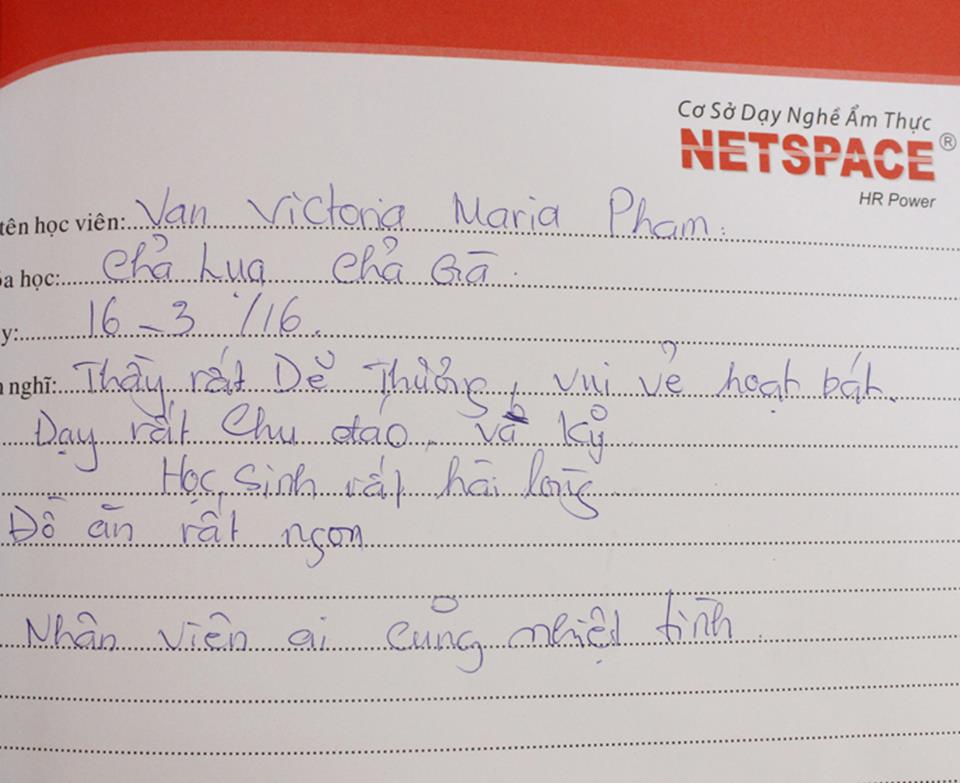 Cơ Sở Dạy Nghề Ẩm Thực
NETSPACE®
HR Power
tên học viên: Van Victoria Maria Pham.
a học: Chả Lụa Chả Gà.
y: 16-3/16.
nghĩ: Thầy rất Dể Thương, vui vẻ hoạt bát.
Dạy rất Chu đáo, và kỷ
Học sinh rất hài lòng
Đồ ăn rất ngon
Nhân viên ai củng nhiệt tình.